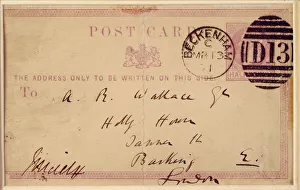 POST CARD
BECKENHAM
C
MR 13
71
D13
HALF
THE ADDRESS ONLY TO BE WRITTEN ON THIS SIDE.
To
A. R. Wallace Esq
Holly House
Tanner St
Barking
E.
London